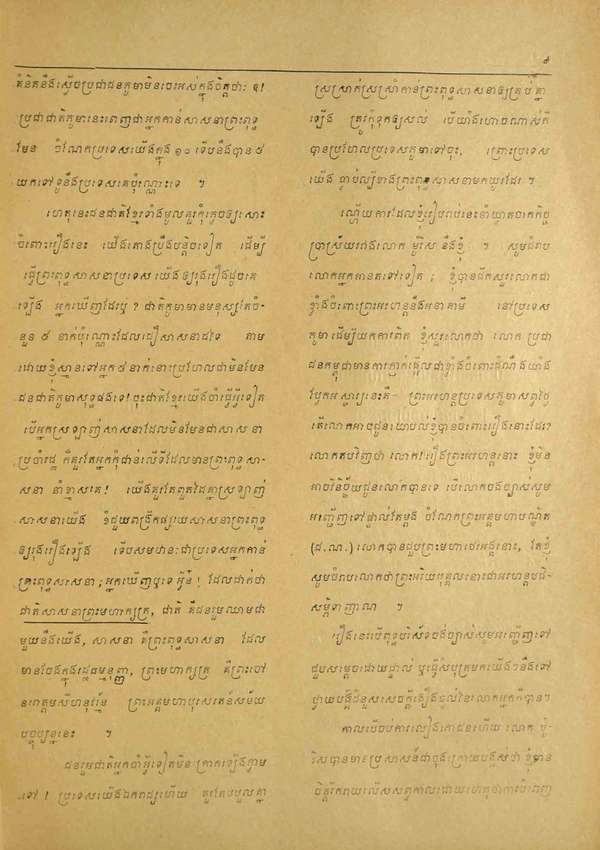 ៩
គំនិតនឹងស្មើចប្រជាជនភូមាមិនចេះអស់ក្នុងចិត្តថាៈ ឱ!
ប្រជាជាតិភូមានេះពេញជាអ្នកកាន់សាសនាព្រះពុទ្ធ
មែន ចំណែកប្រទេសយើងក្នុង ១០ ទើបនឹងបាន ៩
យកទៅទូនឹងប្រទេសគេប៉ុណ្ណោះទេ ។
ហេតុនេះជនជាតិខ្មែរទាំងមូលគួរកុំកុចឲ្យសោះ
ចំពោះរឿងនេះ យើងតោងប្រឹងបន្តិចទៀត ដើម្បី
ធ្វើព្រះពុទ្ធសាសនាប្រទេសយើងឲ្យរុងរឿងដូចគេ
ឡើង អ្នកឃើញដែរឬ ? ជាតិភូមាមានមនុស្សតែចំ-
នួន ៩ នាក់ប៉ុណ្ណោះដែលជឿសាសនាដទៃ តាម
ដោយខ្ញុំស្មានទៅអ្នក ៩ នាក់នោះប្រហែលជាមិនមែន
ជនជាតិភូមាសុទ្ធផងទេ! ចុះជាតិខ្មែរយើងចាំធ្វើអ្វីទៀត
បើអ្នកស្រឡាញ់សាសនាដែលមិនមែនជាសាសនា
ប្រចាំរដ្ឋ ក៏គួរតែអ្នកកុំជាន់លើទីដែលមានព្រះពុទ្ធសា-
សនា នាំខ្មាសគេ! យើងគួរតែពួតដៃគ្នាស្រឡាញ់
សាសនាយើង ខំជួយពង្រីកផ្សាយសាសនាព្រះពុទ្ធ
ឲ្យរុងរឿងឡើង ទើបសមឋានៈជាប្រទេសអ្នកកាន់
ព្រះពុទ្ធសាសនា ; អ្នកឃើញឬទេ អ្វីៗ! ដែលដាក់ថា
ជាតិសាសនាព្រះមហាក្សត្រ, ជាតិ គឺជនរួមឈាមជា
មួយនឹងយើង, សាសនា គឺព្រះពុទ្ធសាសនា ដែល
មានចែងក្នុងរដ្ឋធម្មនុញ្ញ, ព្រះមហាក្សត្រ គឺព្រះចៅ
នរោត្តមសីហនុវរ្ម័ន ព្រះអង្គមហាបុរសរតន៍សម័យ
បច្ចុប្បន្ននេះ ។
ជនរួមជាតិអ្នកចាំអ្វីទៀតមិនក្រោកឡើងភ្លាម
ទៅ ! ប្រទេសយើងឯករាជ្យហើយ គួរតែរួបរួមគ្នា
ស្រស្រាក់ស្រស្រាំកាន់ព្រះពុទ្ធសាសនាឲ្យគ្រប់គ្នា
ឡើង ត្រូវកុំទុកឲ្យសល់ បើយ៉ាងហោចណាស់ក៏
បានប្រហែលប្រទេសភូមាទៅចុះ, ព្រោះប្រទេស
យើង ធ្លាប់ល្បីខាងព្រះពុទ្ធសាសនាមកយូរដែរ ។
ណ្ហើយការដែលខ្ញុំរៀបរាប់នេះនាំឃ្លាតចាកកិច្ច
ប្រាស្រ័យរវាងលោក ម៉ូរីស នឹងខ្ញុំ ។ សូមជំរាប
លោកអ្នកអានតទៅទៀត ; ខ្ញុំបានដឹកសួរលោកជា
ខ្លាំងចំពោះព្រះអរហន្តនឹងអនាគាមី នៅប្រទេស
ភូមាដើម្បីយកការពិត ខ្ញុំសួរលោកថា លោក ប្រជា
ជនកម្ពុជាមានការភ្ញាក់ផ្អើលជាខ្លាំងចំពោះដំណឹងយ៉ាង
ប្លែកអស្ចារ្យនេះគឺ- ព្រះអរហន្តប្រទេសភូមាសព្វថ្ងៃ
តើលោកអាចជួនយោបល់ខ្ញុំបានចំពោះរឿងនោះដែរ?
លោកតបវិញថា លោក! រឿងព្រះអរហន្តនោះ ខ្ញុំមិន
អាចវិនិច្ឆ័យជូនលោកបានទេ បើលោកចង់ច្បាស់សូម
អញ្ជើញទៅផ្ទាល់តែម្ដង ចំណែកព្រះអង្គមហាបណ្ឌិត
(ជ.ណ.) លោកបានជួបព្រះមហាថេរអង្គនោះ, តែខ្ញុំ
សូមជំរាបលោកថាព្រះអរិយបុគ្គលនោះជាអរហន្តបដិ-
សម្ភិទាញាណ ។
រឿងនេះបើពុទ្ធបរិស័ទចង់ច្បាស់សូមអញ្ជើញទៅ
ជួបសម្ដេចដោយផ្ទាល់ ឬធ្វើសំបុត្រមកយើងៗនឹងទៅ
ថ្វាយបង្គំជំនួសសេចក្ដីឆ្ងល់នៃលោកអ្នកក៏បាន។
កាលបើចប់ការលៀងភោជនហើយ លោក ម៉ូ-
រីសបានមានប្រសាសន៍ជាចុងក្រោយបង្អស់ថា ខ្ញុំបាន
ចិត្តរីករាយលើសសព្វកាលដោយហេតុថាការបំពេញ